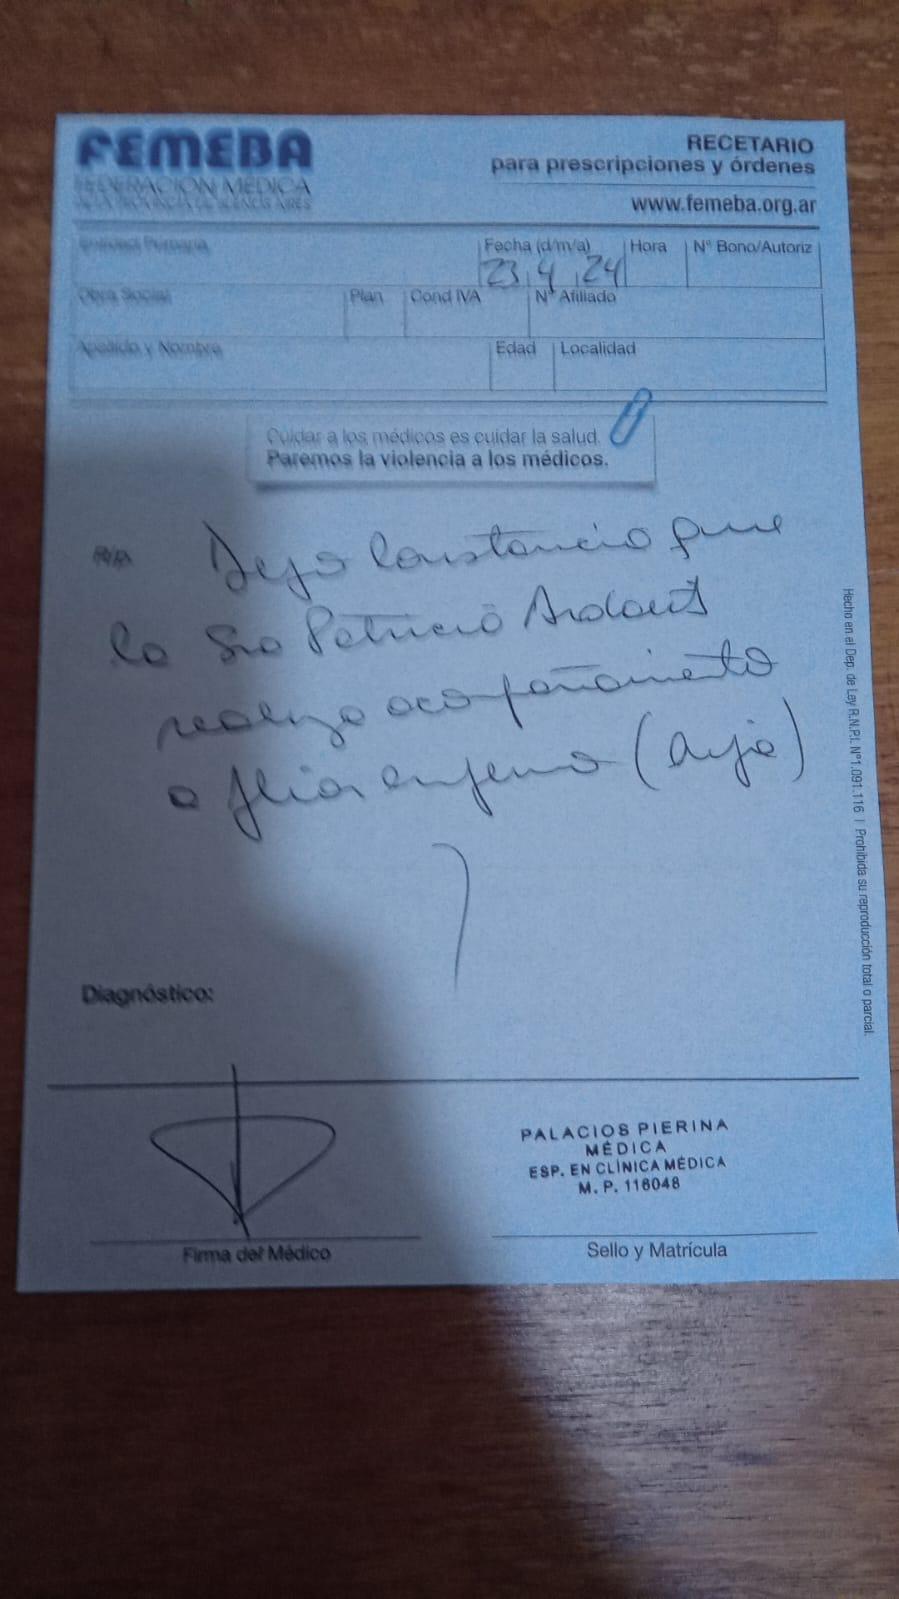 FEMEBA
FEDERACION MEDICA
DE LA PROVINCIA DE BUENOS AIRES
RECETARIO
para prescripciones y órdenes
www.femeba.org.ar
Entidad Primaria
Fecha (d/m/a) Hora Nº Bono/Autoriz
23 4 24
Obra Social Plan Cond IVA Nº Afiliado
Apellido y Nombre Edad Localidad
Cuidar a los médicos es cuidar la salud.
Paremos la violencia a los médicos.
Dejo Constancia que
la Sra Patricia
realizo acompañamiento
a fliar enfermo (hija)
Hecho en el Dep. de Ley R.N.P.I. Nº1.091.116 | Prohibida su reproducción total o parcial.
Diagnóstico:
PALACIOS PIERINA
MÉDICA
ESP. EN CLÍNICA MÉDICA
M. P. 116048
Firma del Médico
Sello y Matrícula